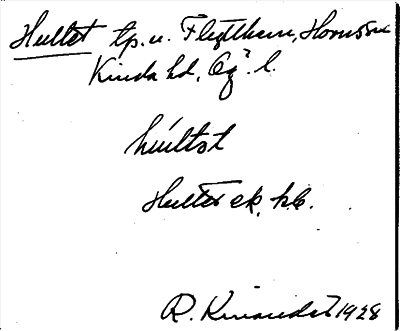 Hultet tp. u. Flytthem, Horns sn
Kinda hd, Ög. l.
húltət
Hultet ek. kb.
R. Kinander 1928